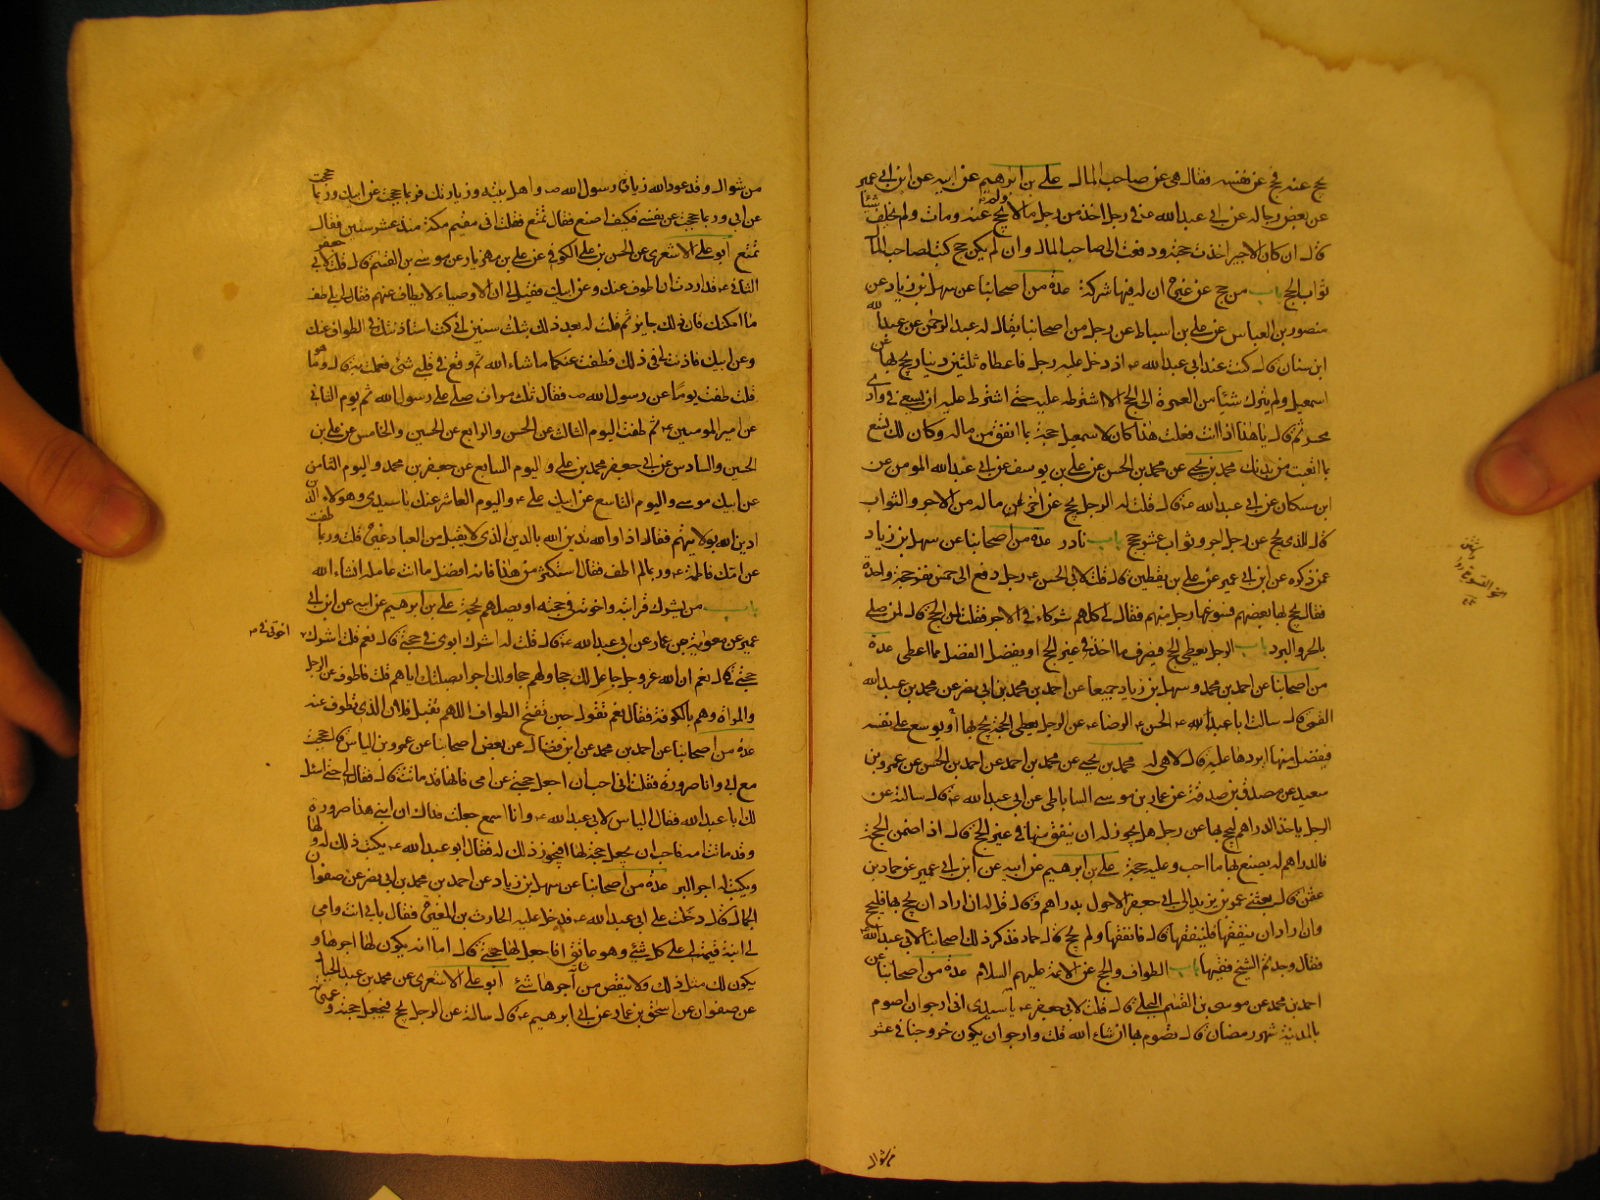 يحج عنه فحج عن نفسه فقال هي عن صاحب المال علي بن ابرهيم عن ابيه عن ابن ابي عمير
عن بعض رجاله عن ابي عبد الله ع في رجل اخذ من رجل مالا ولم يحج عنه ومات ولم يخلف شيئا
قال ان كان الاجير اخذت حجته ودفعت الى صاحب المال وان لم يكن حج كتب لصاحب المال
ثواب الحج باب من حج عن غيره ان له فيها شركة عدة من اصحابنا عن سهل بن زياد عن
منصور بن العباس عن علي بن اسباط عن رجل من اصحابنا يقال له عبد الرحمن عن عبد الله
ابن سنان قال كنت عند ابي عبد الله ع اذ دخل عليه رجل فاعطاه ثلثين دينارا يحج بها عن
اسمعيل ولم يترك شيئا من العمرة الى الحج الا اشترطه عليه حتى اشترط عليه ان يسعى في وادي
محسر ثم قال يا هذا اذا انت فعلت هذا كان لاسمعيل حجة بما انفق من ماله وكان لك تسع
بما اتعبت من بدنك محمد بن يحيى عن محمد بن الحسن عن علي بن يوسف عن ابي عبد الله المومن عن
ابن مسكان عن ابي عبد الله ع قال قلت له الرجل يحج عن اخر ما له من الاجر والثواب
قال للذي يحج عن رجل اجر وثواب عشر حجج باب نادر عدة من اصحابنا عن سهل بن زياد
عمن ذكره عن ابن ابي عمير عن علي بن يقطين قال قلت لابي الحسن ع رجل دفع الى خمس نفر حجة واحدة
فقال يحج بها بعضهم فسوغها رجل منهم فقال لي كلهم شركاء في الاجر فقلت لمن الحج قال لمن صلي
بالحر والبرد باب الرجل يعطى الحج فيصرف ما اخذ في غير الحج او يفضل الفضل مما اعطى عدة
من اصحابنا عن احمد بن محمد وسهل بن زياد جميعا عن احمد بن محمد بن ابي نصر عن محمد بن عبد الله
القمي قال سالت ابا الحسن الرضا ع عن الرجل يعطى الحجة يحج بها او يوسع على نفسه
فيفضل منها ايردها عليه قال لا هي له محمد بن يحيى عن محمد بن احمد عن احمد بن الحسن عن عمرو بن
سعيد عن مصدق بن صدقة عن عمار بن موسى الساباطي عن ابي عبد الله ع قال سالته عن
الرجل ياخذ الدراهم ليحج بها عن رجل هل يجوز له ان ينفق منها في غير الحج قال اذا ضمن الحجة
فالدراهم له يصنع بها ما احب وعليه حجة علي بن ابرهيم عن ابيه عن ابن ابي عمير عن حماد بن
عثمن قال بعثني عمر بن يزيد الى ابي جعفر الاحول بدراهم وقال قل له ان اراد ان يحج بها فليحج
وان اراد ان ينفقها فلينفقها قال فانفقها ولم يحج قال حماد فذكر ذلك اصحابنا لابي عبد الله
فقال وجدتم الشيخ فقيها باب الطواف والحج عن الائمة عليهم السلام عدة من اصحابنا عن
احمد بن محمد عن موسى بن القسم البجلي قال قلت لابي جعفر ع يا سيدي اني ارجو ان اصوم
بالمدينة شهر رمضان قال تصوم بها انشاء الله قلت وارجو ان يكون خروجنا في عشر
من شوال
من شوال وقد عود الله زيارة رسول الله ص واهل بيته وزيارتك فربما حججت عن ابيك وربما حججت
عن ابي وربما حججت عن نفسي فكيف اصنع فقال تمتع فقلت اني مقيم مكة منذ عشر سنين فقال
تمتع ابو علي الاشعري عن الحسن بن علي الكوفي عن علي بن مهزيار عن موسى بن القسم قال قلت لابي جعفر
الثاني ع قد اردت ان اطوف عنك وعن ابيك فقيل لي ان الاوصياء لا يطاف عنهم فقال لي بل طف
ما امكنك فان ذلك جايز ثم قلت له بعد ذلك بثلث سنين اني كنت استاذنتك في الطواف عنك
وعن ابيك فاذنت لي في ذلك فطفت عنكما ما شاء الله ثم وقع في قلبي شئ فعملت به قال وما هو
قلت طفت يوما عن رسول الله ص فقال ثلث مرات صلى على رسول الله ثم يوم الثاني
عن امير المومنين ع ثم طفت اليوم الثالث عن الحسن والرابع عن الحسين والخامس عن علي بن
الحسين والسادس عن ابي جعفر محمد بن علي و اليوم السابع عن جعفر بن محمد واليوم الثامن
عن ابيك موسى واليوم التاسع عن ابيك علي ع واليوم العاشر عنك يا سيدي وهولاء الذين
ادين الله بولايتهم فقال اذا والله تدين الله بالدين الذي لا يقبل من العباد غيره قلت وربما طفت
عن امك فاطمة ع وربما لم اطف فقال استكثر من هذا فانه افضل ما انت عامله انشاء الله
باب من يشرك قرابته واخوته في حجته او يصلهم بحجة علي بن ابرهيم عن ابيه عن ابن ابي
عمير عن معوية بن عمار عن ابي عبد الله ع قال قلت له اشرك ابوي في حجتي قال نعم قلت اشرك
اخوتي في
حجتي قال نعم ان الله عز وجل جاعل لك حجا ولهم حجا ولك اجر بصلتك اياهم قلت فاطوف عن الرجل
والمراة وهم بالكوفة فقال نعم تقول حين تفتتح الطواف اللهم تقبل من فلان الذي تطوف عنه
عدة من اصحابنا عن احمد بن محمد عن ابن فضال عن بعض اصحابنا عن عمرو بن الياس قال حججت
مع ابي وانا صرورة فقلت اني احب ان اجعل حجتي عن امي فانها قد ماتت قال فقال لي حتى اسئل
لك ابا عبد الله فقال الياس لابي عبد الله ع وانا اسمع جعلت فداك ان ابني هذا صرورة
وقد ماتت امه فاحب ان يجعل حجته لها افيجوز ذلك له فقال ابو عبد الله ع يكتب ذلك له ولها
ويكتب له اجر البر عدة من اصحابنا عن سهل بن زياد عن احمد بن محمد بن ابي نصر عن صفوان
الجمال قال دخلت على ابي عبد الله ع فدخل عليه الحارث بن المغيرة فقال بابي انت وامي
لي ابنة قيمة لي على كل شئ وهو عاتق افاجعل لها حجتي قال اما انه يكون لها اجرها و
يكون لك مثل ذلك ولا ينقص من اجرها شئ ابو علي الاشعري عن محمد بن عبد الجبار
عن صفوان عن اسحق بن عمار عن ابي ابرهيم ع قال سالته عن الرجل يحج فيجعل حجته و عمرته